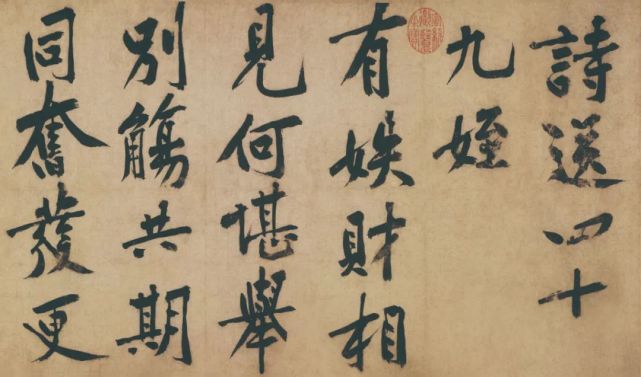 詩送四十
九姪
有娛財相
見何堪舉
別觴共期
同奮發更